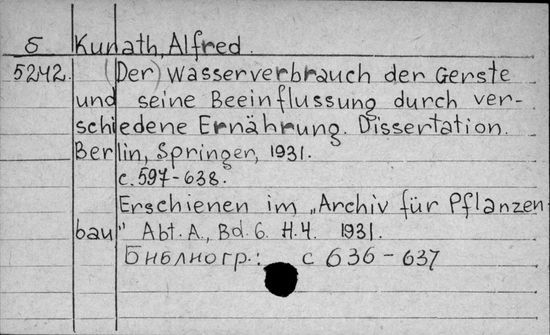 Б Kunath, Alfred.
5242. (Der) Wasserverbrauch der Gerste
und seine Beeinflussung durch ver-
schiedene Ernährung. Dissertation.
Berlin, Springer, 1931.
с. 597-638.
Erschienen im „Archiv für Pflanzen-
bau" Abt. A., Bd. 6. H. 4. 1931.
Библиогр.: с 636-637